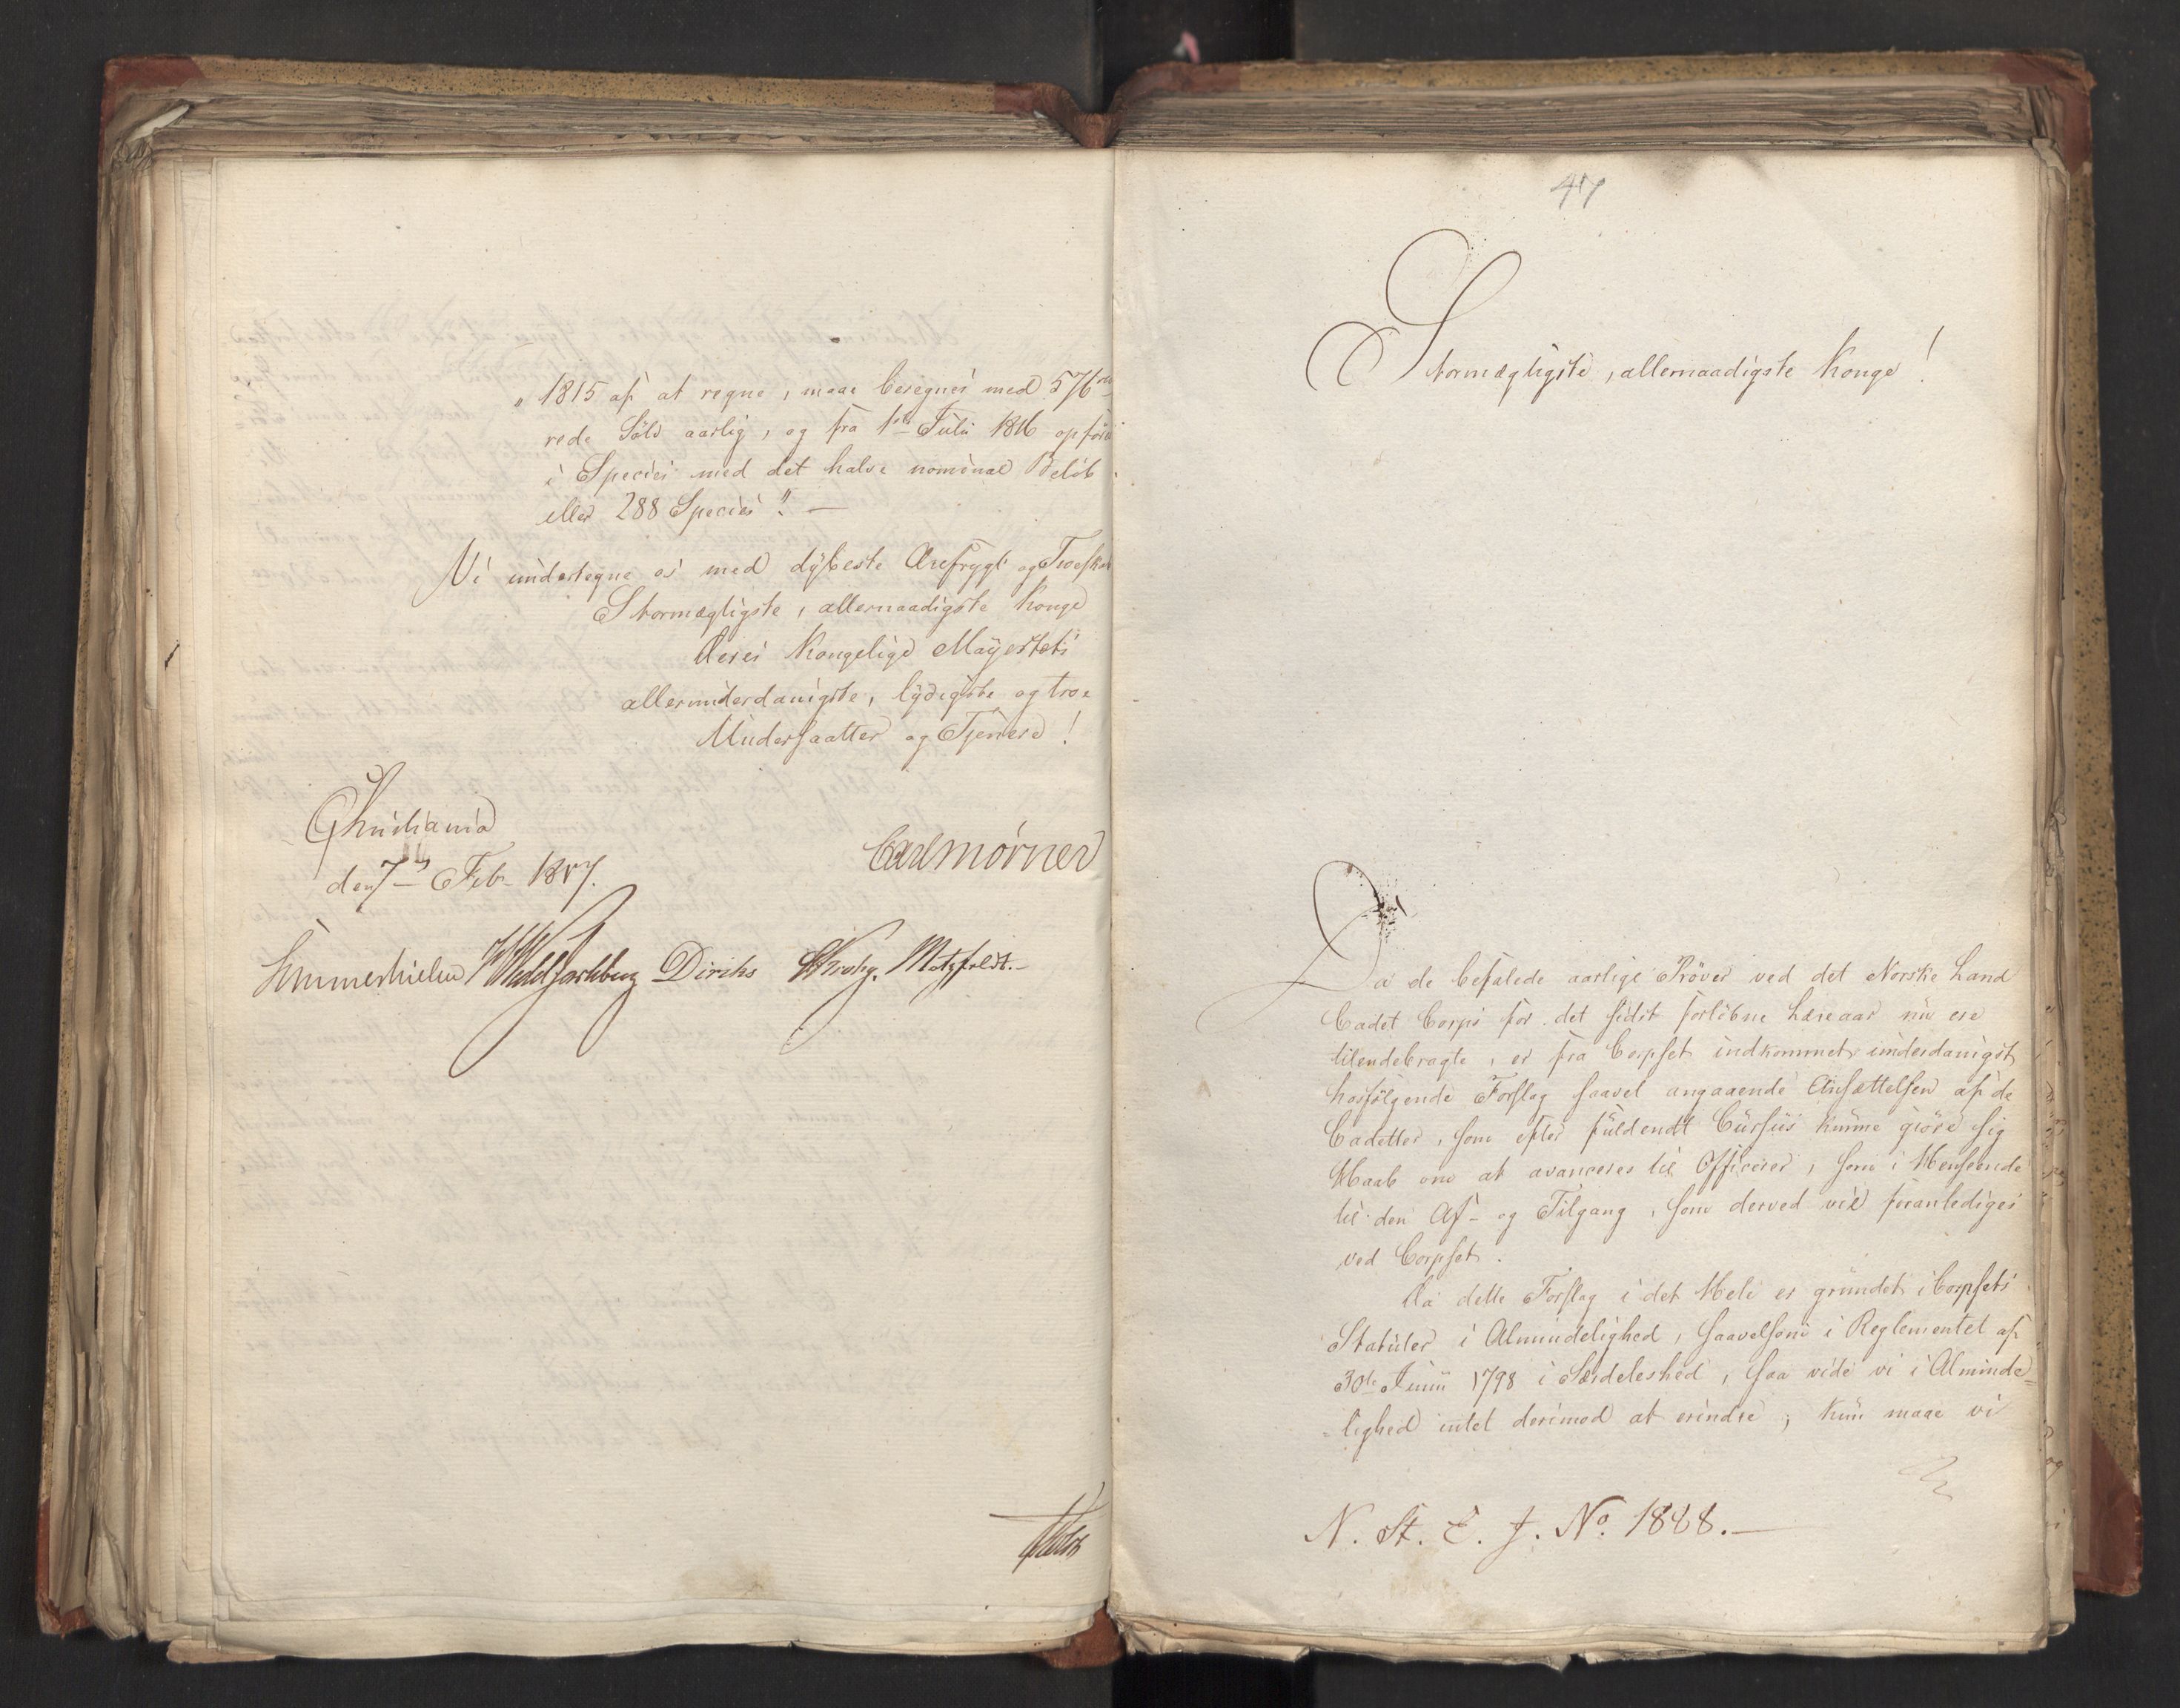 „ 1815 af at regne, maae beregnes med 576
rede Sölv aarlig, og fra 1ste Julii 1816 opföres
i Species med det halve nominal Belöb
eller 288 Species". —
Vi undertegne os med dÿbeste Ærefrygt og Troeskab
Stormægtigste, allernaadigste Konge
Deres Kongelige Mayestets
allerunderdanigste, lÿdigste og troe
Undersaatter og Tjenere!
Christiania
den 7de Febr 1817.
Carl Mörner
Sommerhielm Wedel Jarlsberg Diriks Krohg. Motzfeldt.
47
Stormægtigste, allernaadigste Konge!
Da de befalede aarlige Pröver ved det Norske Land
Cadet Corps for det sidst forlöbne Læreaar nu ere
tilendebragte, er fra Corpset indkommet underdanigst
hosfölgende Forslag saavel angaaende Ansættelsen af de
Cadetter, som efter fuldendt Cursus kunne giöre sig
Haab om at avanceres til Officerer, som i Henseende
til den Af- og Tilgang, som derved vil foranlediges
ved Corpset.
Da dette Forslag i det Hele er grundet i Corpsets
Statuter i Almindelighed, saavelsom i Reglementet af
30te Junii 1798 i Særdeleshed, saa vide vi i Alminde=
=lighed intet derimod at erindre; kun maae vi
N. St. E. J. No. 1828.—